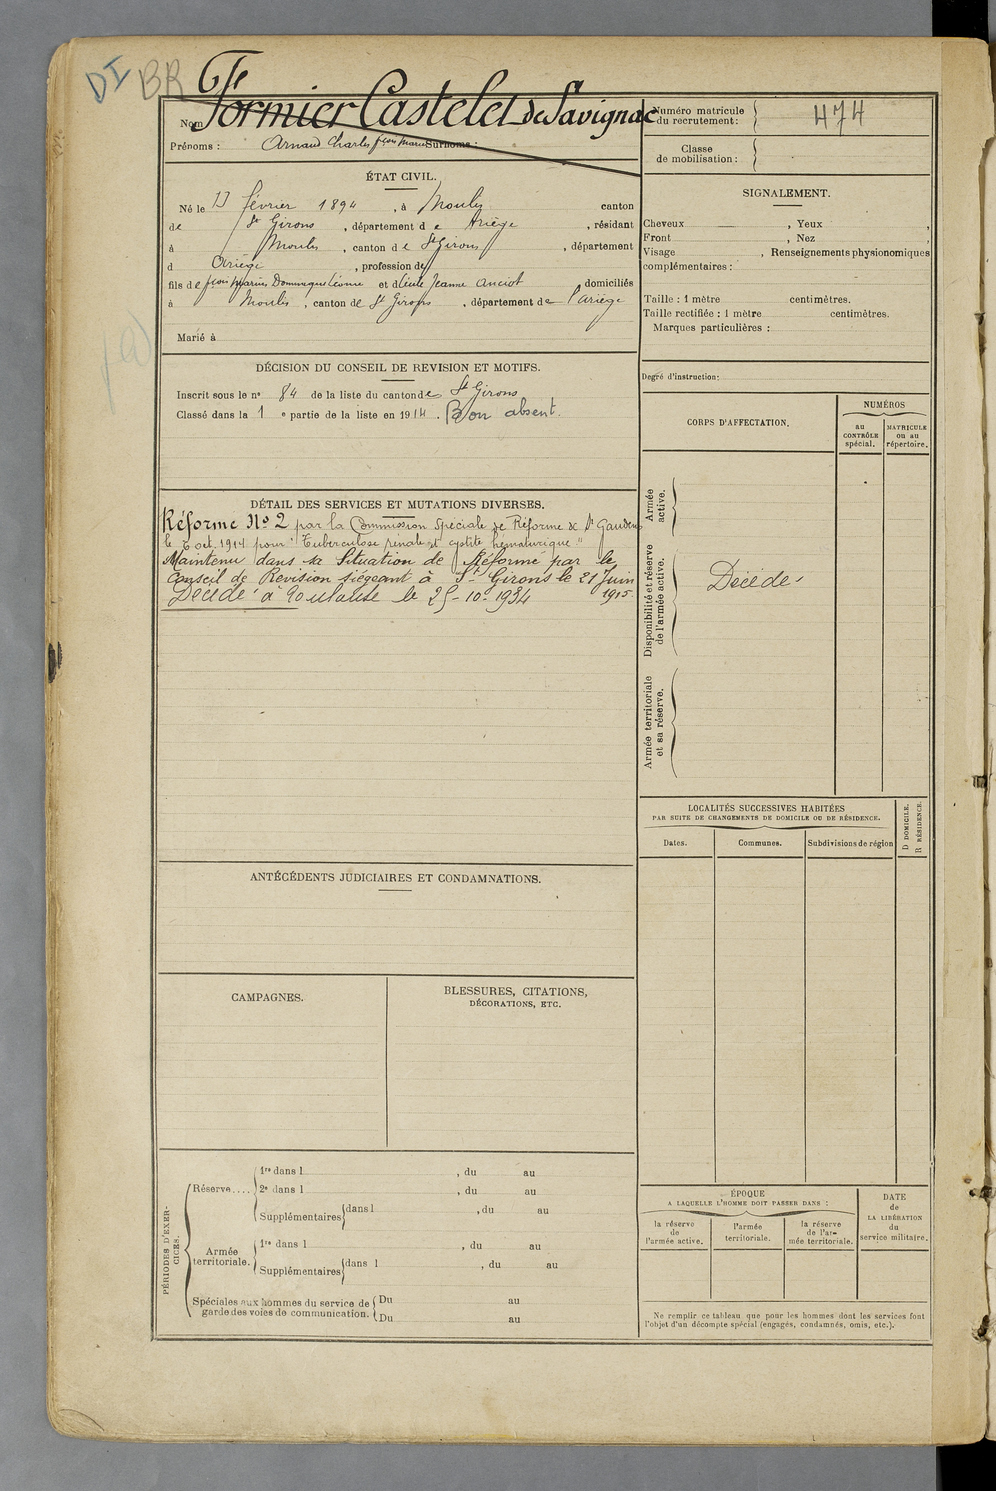 DI BR
Nom Formier Castelet de Savignac
Prénoms : Arnaud Charles fçois Marie Surnoms :
Numéro matricule du recrutement : 474
Classe de mobilisation :
ÉTAT CIVIL.
Né le février 1894, à Moulis canton
de St Girons, département de Ariège, résidant
à Moulis, canton de St Girons, département
d Ariège, profession de
fils de fçois Marius Dominique et de Jeanne Anciot domiciliés
à Moulis, canton de St Girons, département de l'Ariège
Marié à
SIGNALEMENT.
Cheveux , Yeux ,
Front , Nez ,
Visage , Renseignements physionomiques
complémentaires :
Taille : 1 mètre centimètres.
Taille rectifiée : 1 mètre centimètres.
Marques particulières :
Degré d'instruction :
DÉCISION DU CONSEIL DE REVISION ET MOTIFS.
Inscrit sous le no 84 de la liste du canton de St Girons
Classé dans la 1 e partie de la liste en 1914. Bon absent.
DÉTAIL DES SERVICES ET MUTATIONS DIVERSES.
Réforme No 2 par la Commission Spéciale de Réforme de St Gaudens
le oct. 1914 pour "Tuberculose rénale et cystite hématurique"
Maintenu dans sa Situation de Réformé par le
Conseil de Revision siégeant à St Girons le 21 Juin
1915.
Décédé à Toulouse le 25-10-1934
CORPS D'AFFECTATION.
NUMÉROS
au CONTRÔLE spécial.
MATRICULE ou au répertoire.
Armée active.
Disponibilité et réserve de l'armée active.
Décédé
Armée territoriale et sa réserve.
LOCALITÉS SUCCESSIVES HABITÉES
PAR SUITE DE CHANGEMENTS DE DOMICILE OU DE RÉSIDENCE.
Dates.
Communes.
Subdivisions de région
D DOMICILE.
R RÉSIDENCE.
ANTÉCÉDENTS JUDICIAIRES ET CONDAMNATIONS.
CAMPAGNES.
BLESSURES, CITATIONS,
DÉCORATIONS, ETC.
PÉRIODES D'EXERCICES.
Réserve....
1re dans l , du au
2e dans l , du au
Supplémentaires dans l , du au
Armée territoriale.
1re dans l , du au
Supplémentaires dans l , du au
Spéciales aux hommes du service de garde des voies de communication.
Du au
Du au
ÉPOQUE
A LAQUELLE L'HOMME DOIT PASSER DANS :
la réserve de l'armée active.
l'armée territoriale.
la réserve de l'armée territoriale.
DATE de LA LIBÉRATION du service militaire.
Ne remplir ce tableau que pour les hommes dont les services font
l'objet d'un décompte spécial (engagés, condamnés, omis, etc.).